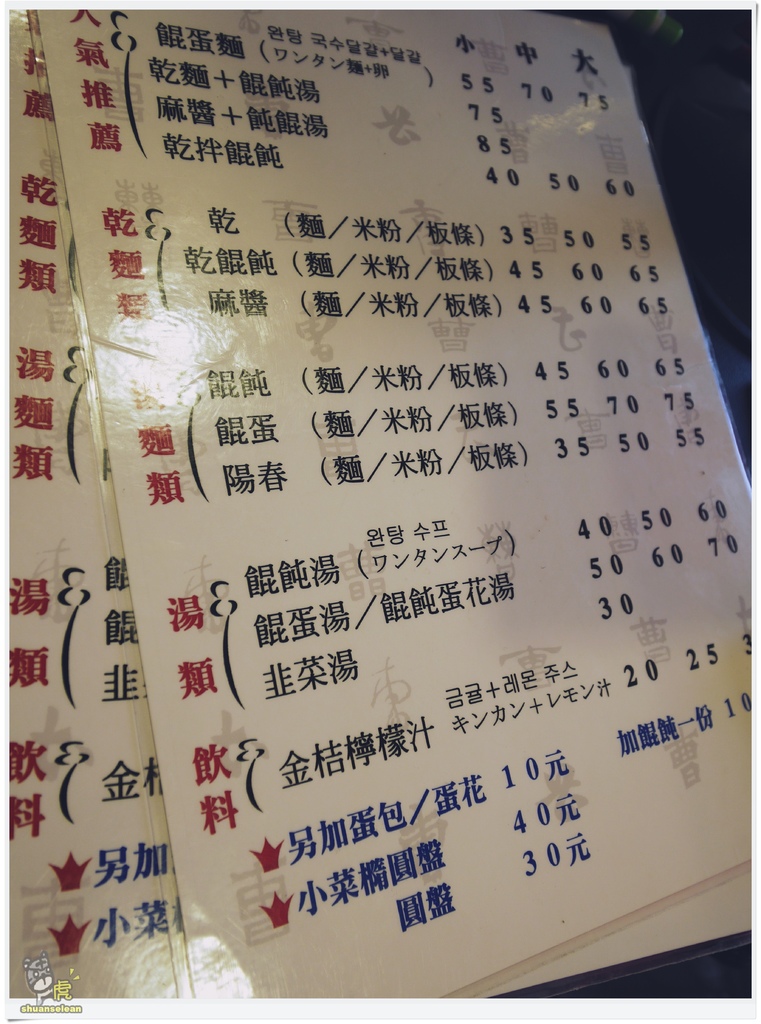 人氣推薦
小 中 大
餛蛋麵（완탕 국수달걀+달걀
ワンタン麺+卵）55 70 75
乾麵＋餛飩湯 75
麻醬＋飩餛湯 85
乾拌餛飩 40 50 60
乾麵類
乾（麵／米粉／板條）35 50 55
乾餛飩（麵／米粉／板條）45 60 65
麻醬（麵／米粉／板條）45 60 65
湯麵類
餛飩（麵／米粉／板條）45 60 65
餛蛋（麵／米粉／板條）55 70 75
陽春（麵／米粉／板條）35 50 55
湯類
餛飩湯（완탕 수프
ワンタンスープ）40 50 60
餛蛋湯／餛飩蛋花湯 50 60 70
韭菜湯 30
飲料
金桔檸檬汁 금귤+레몬 주스
キンカン+レモン汁 20 25
加餛飩一份 10
另加蛋包／蛋花 10元
小菜橢圓盤 40元
圓盤 30元
推薦
乾麵類
湯麵類
湯類
餛
餛
韭
飲料
金
另加
小菜
虎
shuanselean